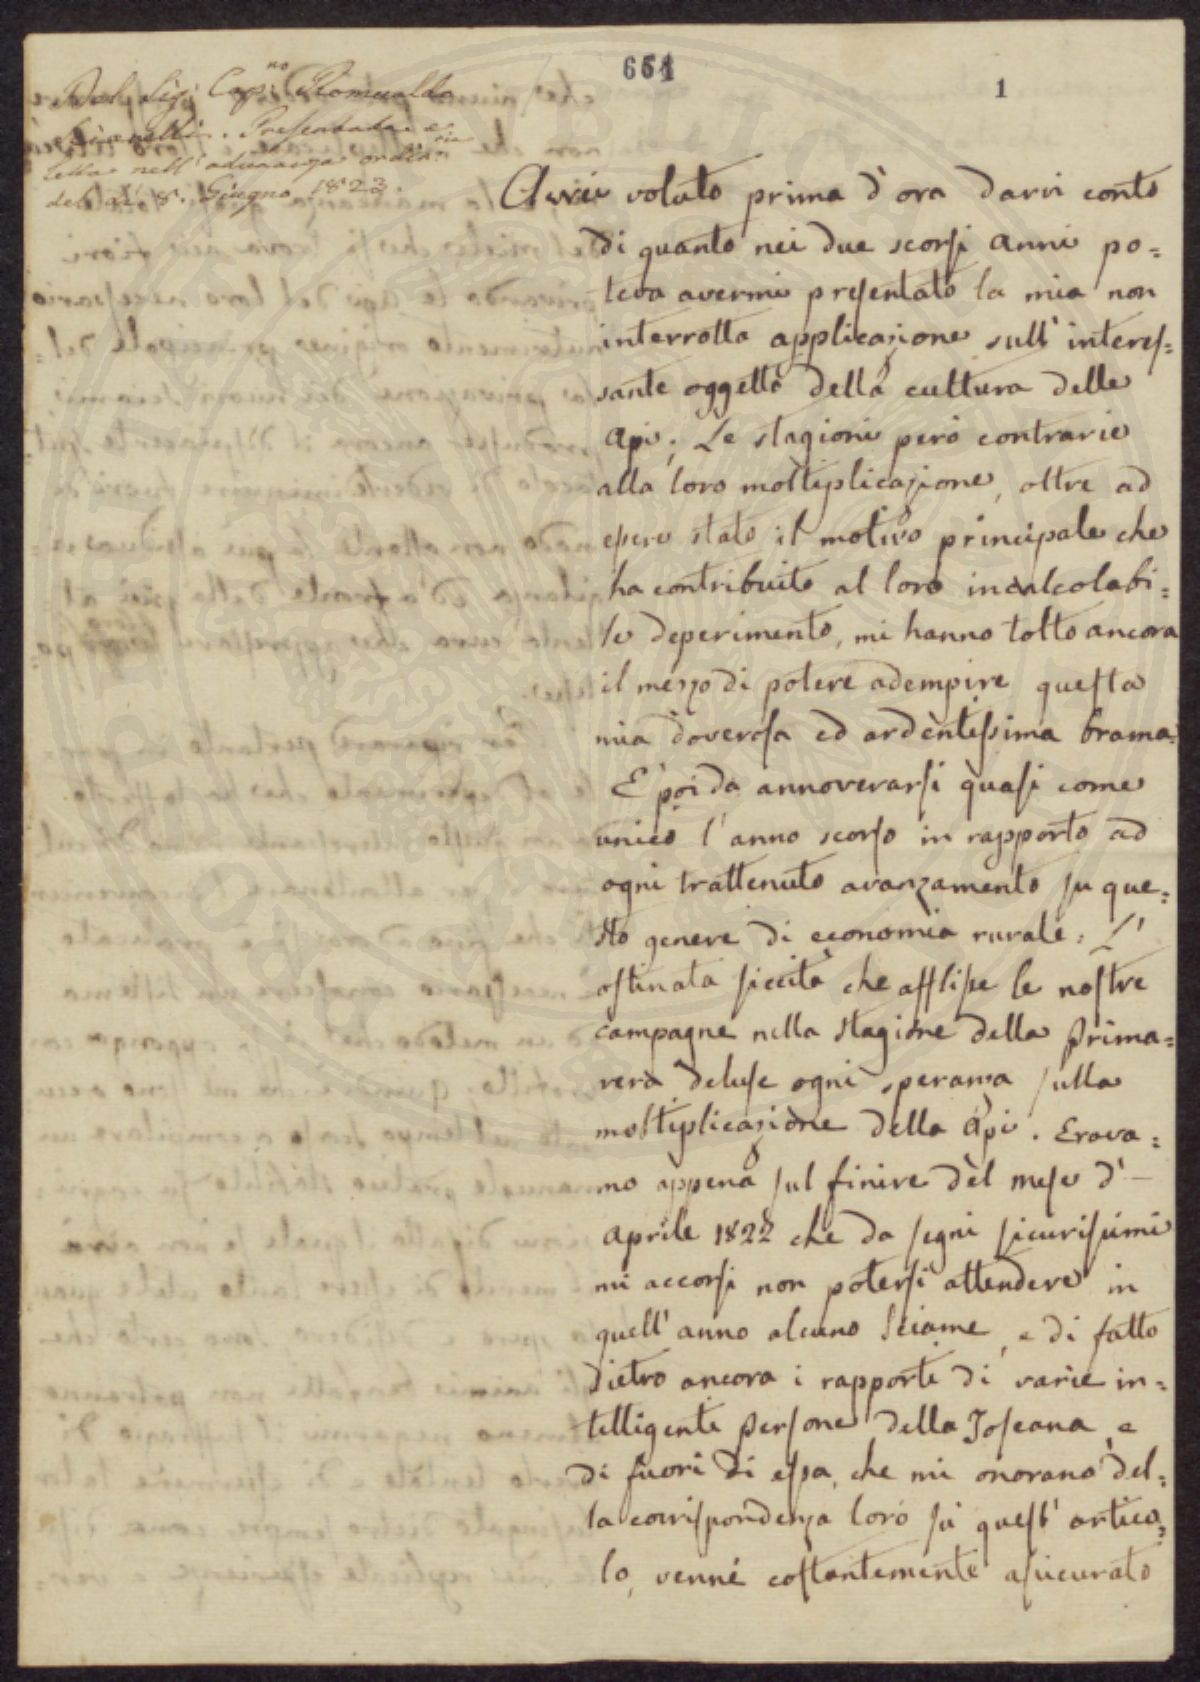 664
1
Del Sig: Cap:no Romualdo
Presentata e
letta nell'adunanza ordin:ria
del dì 8. Giugno 1823.
Avrei voluto prima d'ora darvi conto
di quanto nei due scorsi anni po=
teva avermi presentato la mia non
interrotta applicazione sull'interes=
sante oggetto della cultura delle
Api; Le stagioni però contrarie
alla loro moltiplicazione, oltre ad
essere stato il motivo principale che
ha contribuito al loro incalcolabi=
le deperimento, mi hanno tolto ancora
il mezzo di potere adempire questa
mia doverosa ed ardentissima brama.
E' poi da annoverarsi quasi come
unico l'anno scorso in rapporto ad
ogni trattenuto avanzamento su que=
sto genere di economia rurale. L'
ostinata siccità che afflisse le nostre
campagne nella stagione della Prima=
vera deluse ogni speranza sulla
moltiplicazione delle Api. Erava=
mo appena sul finire del mese d'
Aprile 1822 che da segni sicurissimi
mi accorsi non potersi attendere in
quell'anno alcuno Sciame, e di fatto
dietro ancora i rapporti di varie in=
telligenti Persone della Toscana, e
di fuori di essa, che mi onorano del=
la corrispondenza loro su quest'artico=
lo, venni costantemente assicurato